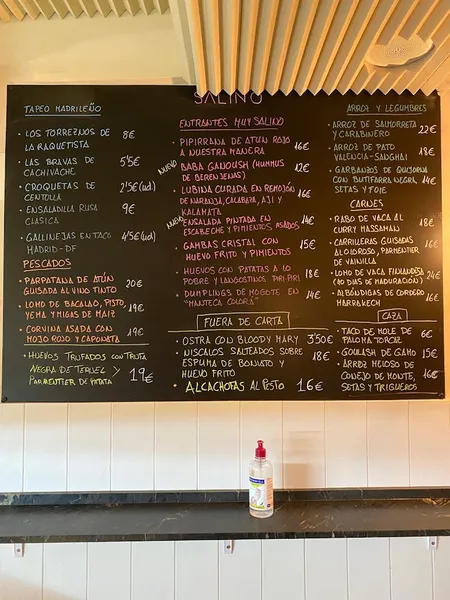 SALINO
TAPEO MADRILEÑO
· LOS TORREZNOS DE
LA RAQUETISTA 8€
· LAS BRAVAS DE
CACHIVACHE 5'5€
· CROQUETAS DE
CENTOLLA 2'5€(ud)
· ENSALADILLA RUSA
CLASICA 9€
· GALLINEJAS EN TACO
MADRID-DF 4'5€(ud)
PESCADOS
· PARPATANA DE ATÚN
GUISADA AL VINO TINTO 20€
· LOMO DE BACALAO, PISTO,
YEMA Y MIGAS DE MAIZ 19€
· CORVINA ASADA CON
MOJO ROJO Y CAPONATA 19€
· HUEVOS TRUFADOS CON TRUFA
NEGRA DE TERUEL Y
PARMENTIER DE PATATA 19€
ENTRANTES MUY SALINO
· PIPIRRANA DE ATUN ROJO
A NUESTRA MANERA 16€
NUEVO
· BABA GANOUSH (HUMMUS
DE BERENJENAS) 12€
· LUBINA CURADA EN REMOJÓN
DE NARANJA, CALABAZA, AJI Y
KALAMATA 16€
NUEVO
· ENSALADA PINTADA EN
ESCABECHE Y PIMIENTOS ASADOS 14€
· GAMBAS CRISTAL CON
HUEVO FRITO Y PIMIENTOS 15€
· HUEVOS CON PATATAS A LO
POBRE Y LANGOSTINOS PIRI-PIRI 18€
· DUMPLINGS DE MOGOTE EN
"MANTECA COLORÁ" 14€
FUERA DE CARTA
· OSTRA CON BLOODY MARY 3'50€
· NISCALOS SALTEADOS SOBRE
ESPUMA DE BONIATO Y
HUEVO FRITO 18€
· ALCACHOFAS AL PESTO 16€
ARROZ Y LEGUMBRES
· ARROZ DE SALMORRETA
Y CARABINERO 22€
· ARROZ DE PATO
VALENCIA-SANGHAI 18€
· GARBANZOS DE QUIJORNA
CON BUTIFARRA NEGRA,
SETAS Y FOIE 14€
CARNES
· RABO DE VACA AL
CURRY MASSAMAN 18€
· CARRILLERAS GUISADAS
AL OLOROSO, PARMENTIER
DE VAINILLA 16€
· LOMO DE VACA FINLANDESA
(40 DIAS DE MADURACION) 24€
· ALBÓNDIGAS DE CORDERO
MARRAKECH 16€
CAZA
· TACO DE MOLE DE
PALOMA TORCAZ 6€
· GOULASH DE GAMO 15€
· ARROZ MELOSO DE
CONEJO DE MONTE,
SETAS Y TRIGUEROS 16€